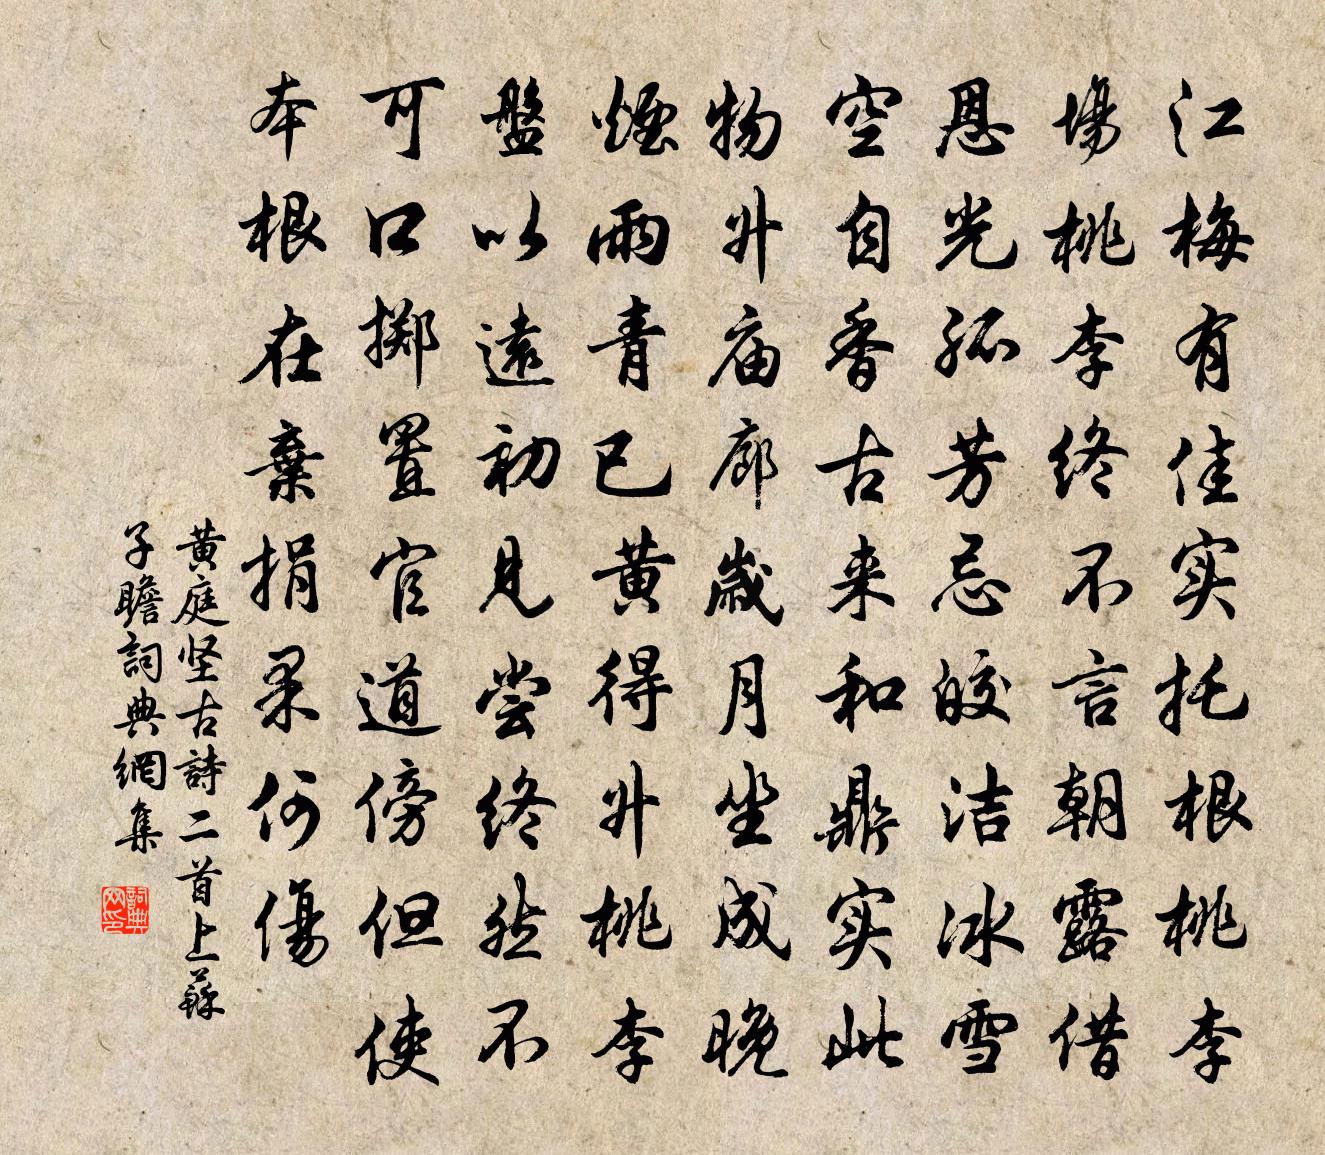 江梅有佳实托根桃李
場桃李终不言朝露借
恩光孤芳忌皎洁冰雪
空自香古来和鼎实此
物升庙廊歲月坐成晚
煙雨青已黄得升桃李
盤以遠初见尝终然不
可口擲置官道傍但使
本根在棄捐果何傷
黄庭坚古詩二首上蘇
子瞻詞典網集
詞典
网印